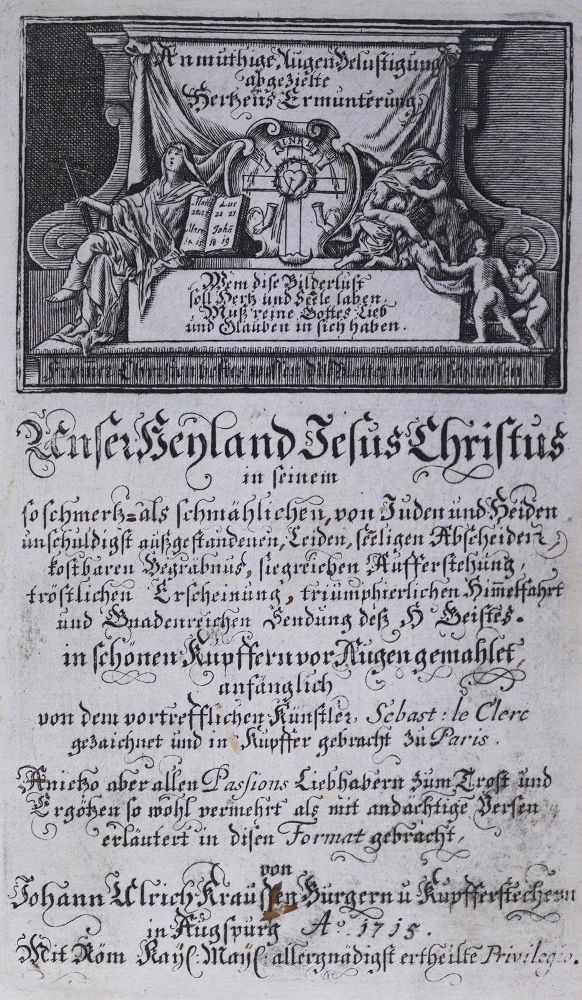 Anmuthige Augen Belustigung
abgezielte
Hertzens Ermunterung
Matt
26 27
Marc
14 15
Luc
22 23
Johā
18 19
Wem dise Bilderlust
soll Hertz und Seele laben,
Muß reine Gottes Lieb
und Glauben in sich haben.
Unser Heyland Jesus Christus
in seinem
so schmertz=als schmählichen, von Juden und Heiden
unschuldigst außgestandenen, Leiden, seeligen Abscheiden,
kostbaren Begräbnus, siegreichen Aufferstehung,
tröstlichen Erscheinung, triumphierlichen Him̄elfahrt
und Gnadenreichen Sendung deß H. Geistes.
in schönen Kupffern vor Augen gemahlet,
anfänglich
von dem vortrefflichen Künstler, Sebast: le Clerc
gezaichnet und in Kupffer gebracht zu Paris.
Anietzo aber allen Passions Liebhabern zum Trost und
Ergötzen so wohl vermehrt als mit andachtige Versen
erläutert in disen Format gebracht,
von
Johann Ulrich Kraussen Burgern u Kupfferstechern
in Augspurg Aō. 1715.
Mit Röm Kayſ: Mayſ: allergnädigst ertheilte Privilegio.